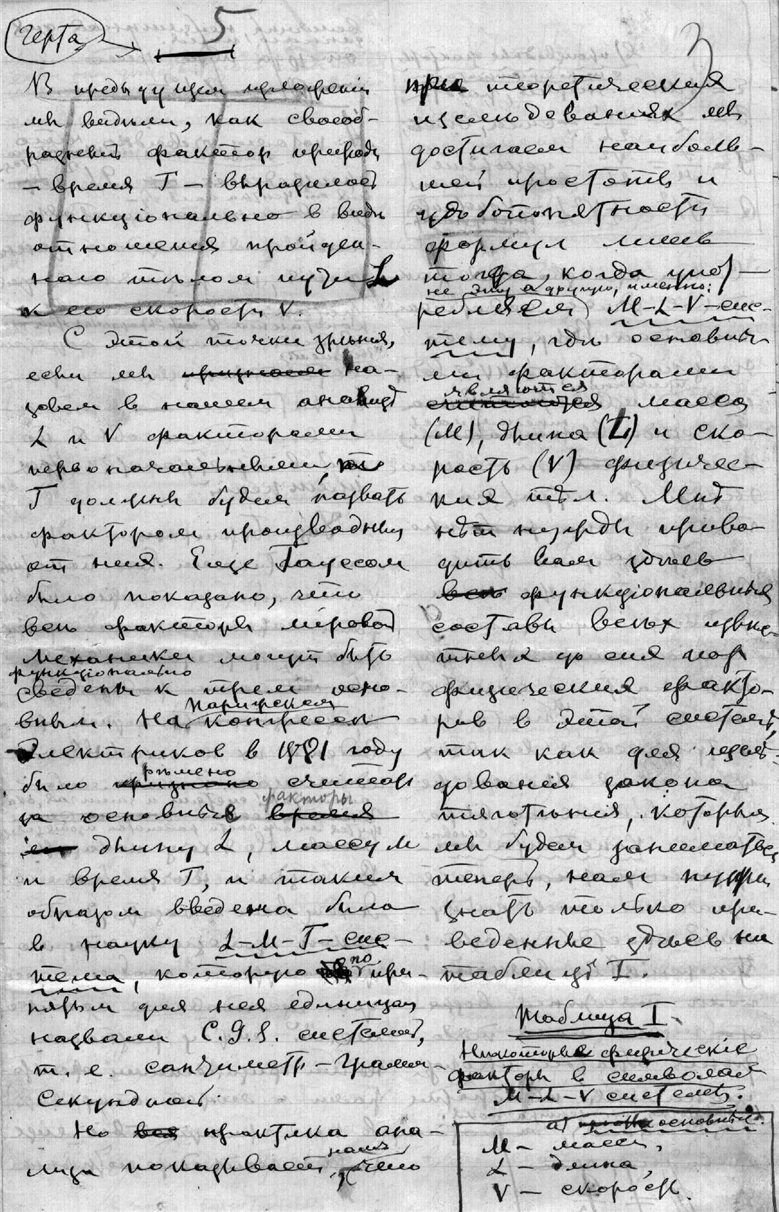 черта
5
3
В предыдущем изложении
мы видѣли, как своеоб-
разный фактор природы
— время T — выразилось
функціонально в видѣ
отношения пройден-
наго тѣлом пути L
к его скорости V.
С этой точки зрѣния,
если мы признаем на-
зовем в нашем анализѣ
L и V факторами
первоначальными, то
T должны будем назвать
фактором производным
от них. Еще Гауссом
было показано, что
всѣ факторы мировой
механики могут быть
функціонально
сведены к трем осно-
вным. На Парижском конгрессѣ
Электриков в 1881 году
было рѣшено считать
за основные факторы время
длину L, массу M
и время T, и таким
образом введена была
в науку L–M–T–сис-
тема, которую по при-
нятым для нея единицам
назвали C.g.s. системой,
т. е. сантиметр–грамм–
секундной.
Но вся практика ана-
лиза показывает нам, что
при теоретических
изслѣдованиях мы
достигаем наиболь-
шей простоты и
удобопонятности
формул лишь
тогда, когда упот-
не эту а другую, именно:
ребляем M–L–V–сис-
тему, гдѣ основны-
ми факторами
являются
считаются масса
(M), длина (L) и ско-
рость (V) физичес-
ких тѣл. Мнѣ
нѣт нужды приво-
дить вам здѣсь
всѣ функціональные
составы всѣх извѣс-
тных до сих пор
физических факто-
ров в этой системѣ,
так как для изслѣ-
дования закона
тяготѣния, которым
мы будем заниматься
теперь, нам нужны
знать только при-
веденные здѣсь на
таблицѣ I.
Таблица I.
Нѣкоторые физическіе
факторы в символах
M–L–V системы.
а) основные.
M — масса,
L — длина,
V — скорость.